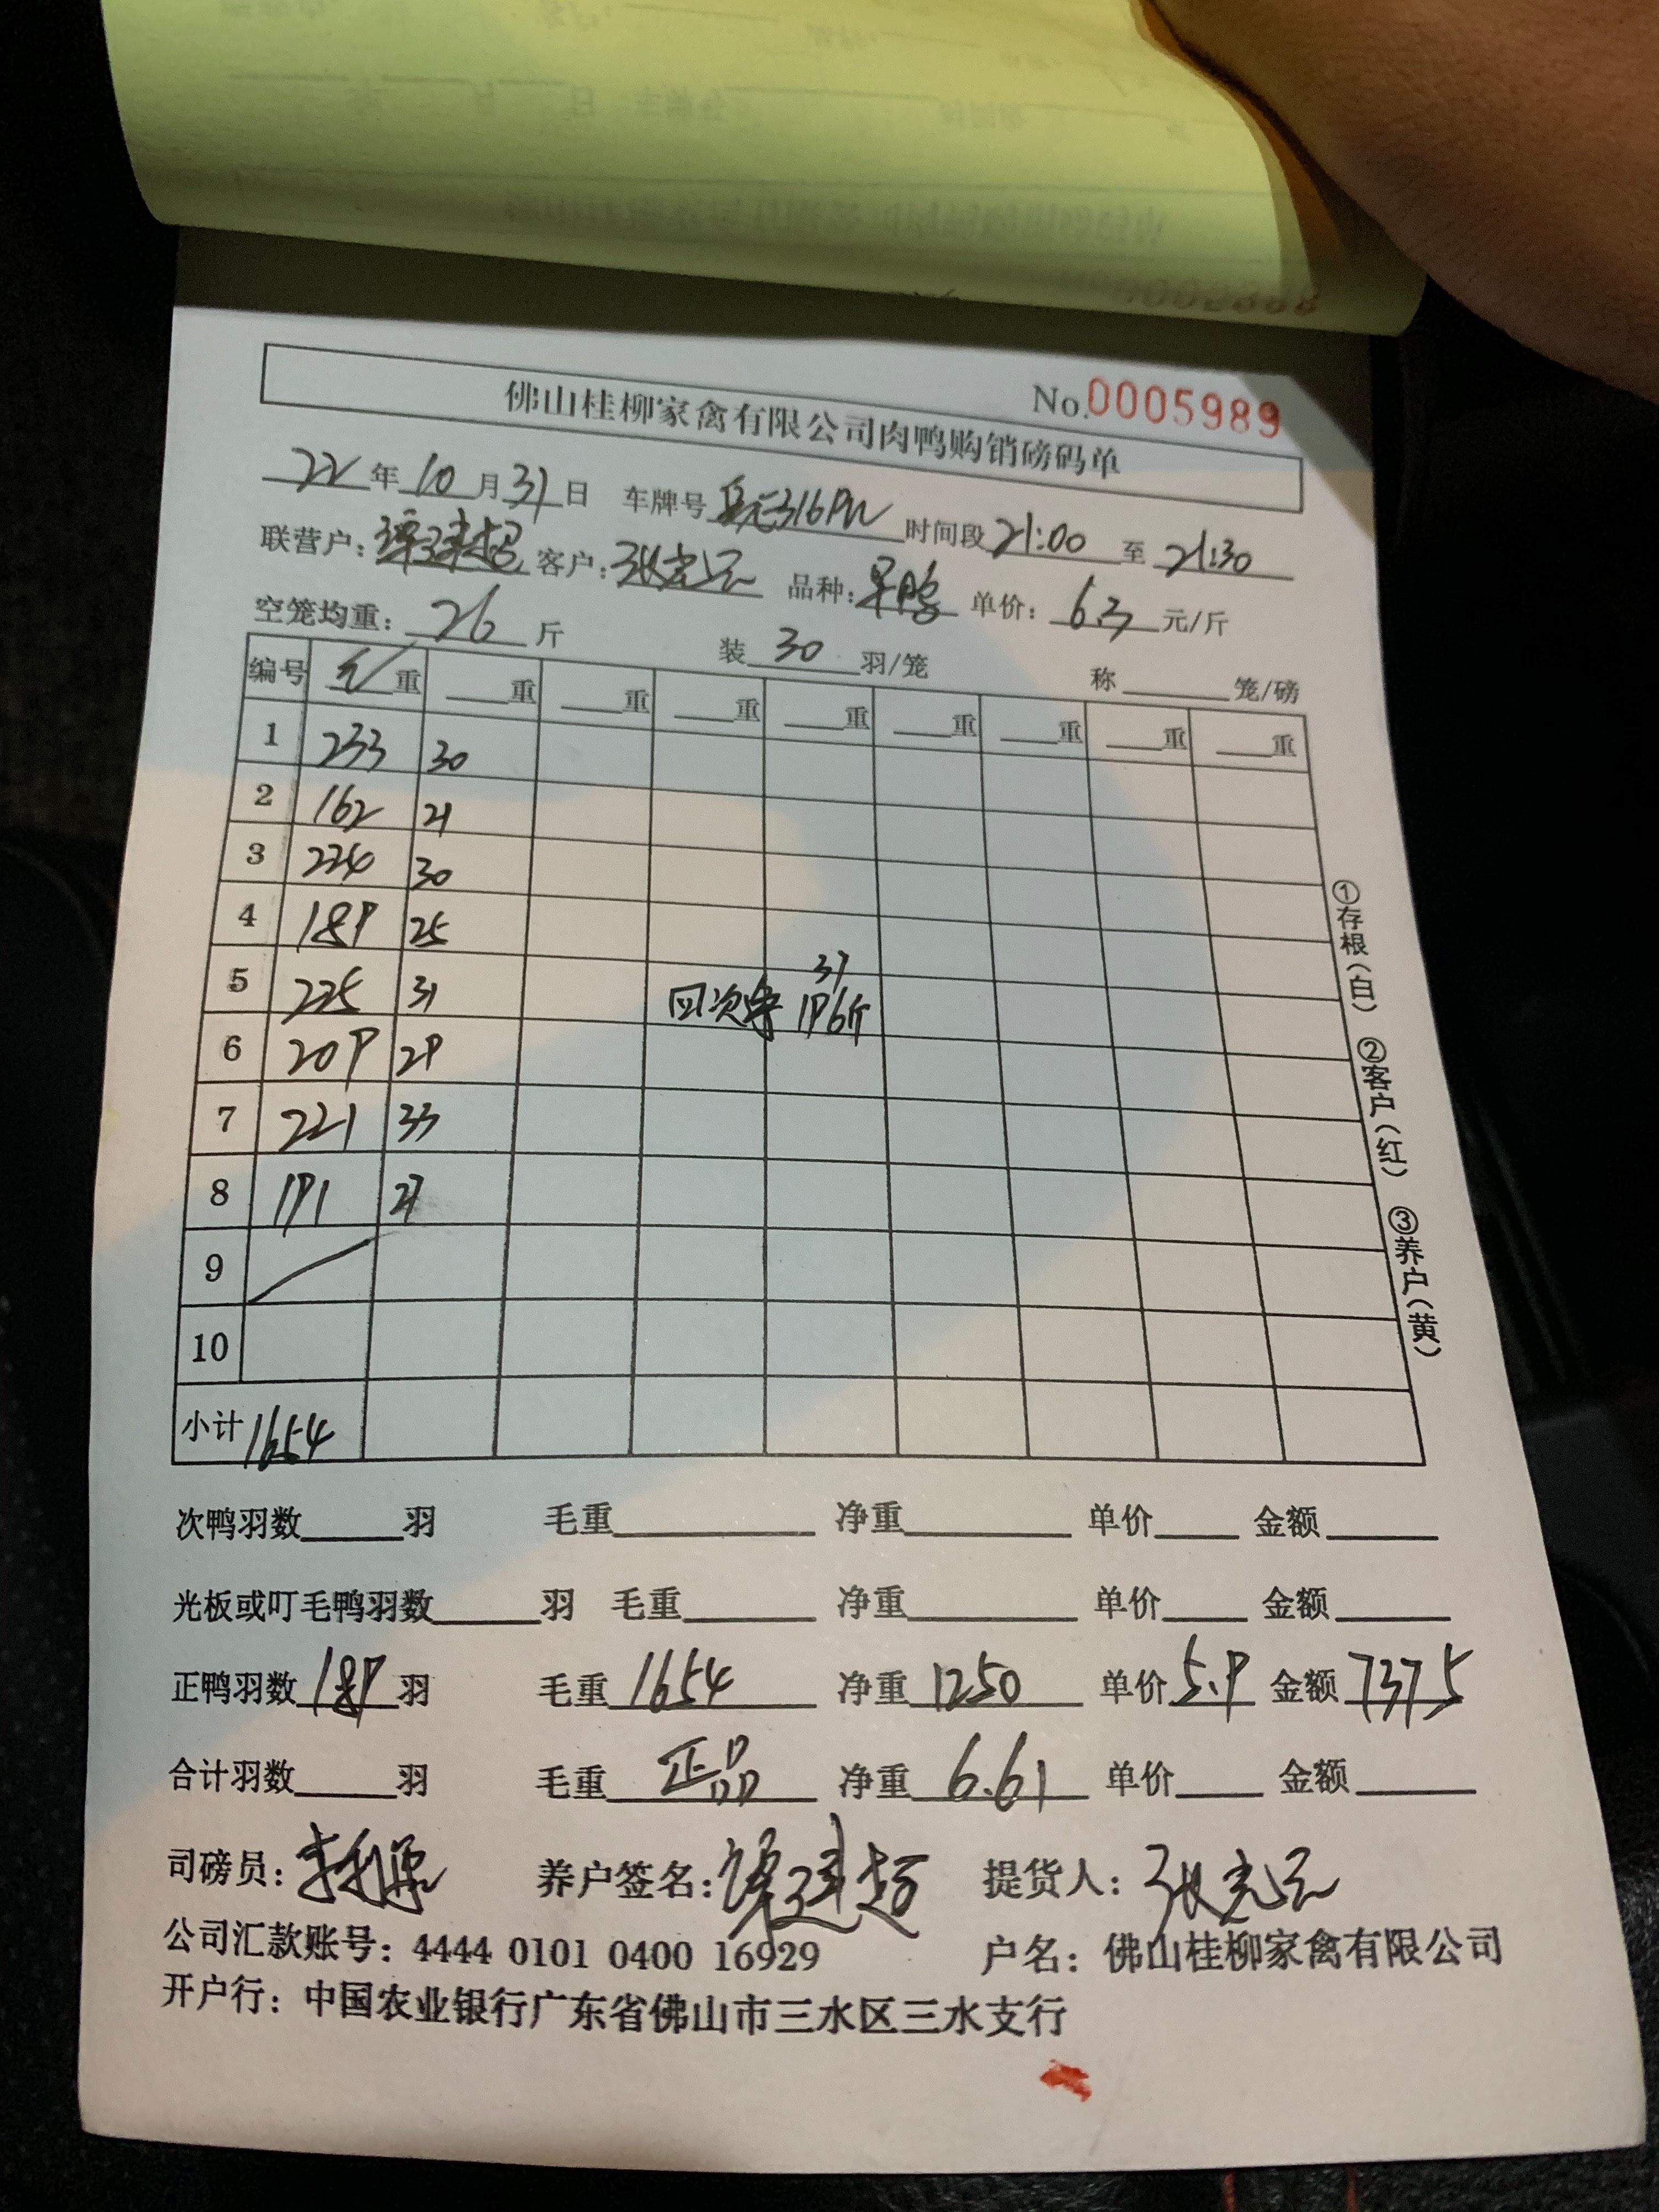 No.0005989
佛山桂柳家禽有限公司肉鸭购销磅码单
22年10月31日 车牌号316 时间段21:00至21:30
联营户:谭建超 客户:张 品种: 单价:6.3元/斤
空笼均重:26斤 装30羽/笼 称 笼/磅
编号 毛重 重 重 重 重 重 重 重 重
1 233 30
2 162 21
3 224 30
4 189 25
5 225 31 回次 37 196斤
6 209 29
7 221 33
8 191 27
9
10
小计 1654
①存根(白) ②客户(红) ③养户(黄)
次鸭羽数 羽 毛重 净重 单价 金额
光板或叮毛鸭羽数 羽 毛重 净重 单价 金额
正鸭羽数189羽 毛重1654 净重1250 单价5.9 金额7375
合计羽数 羽 毛重 正品 净重6.61 单价 金额
司磅员:李 养户签名:谭建超 提货人:张
公司汇款账号:4444 0101 0400 16929 户名:佛山桂柳家禽有限公司
开户行:中国农业银行广东省佛山市三水区三水支行